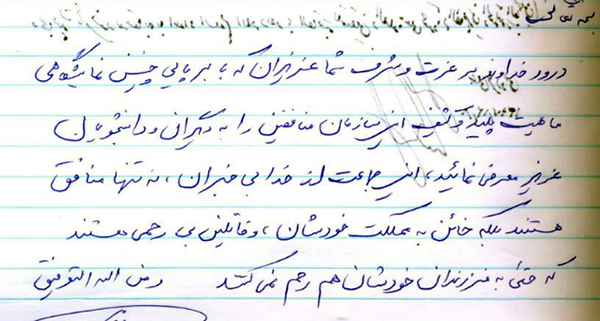 بسمه تعالی
درود خداوند بر عزت و شرف شما عزیزان که با برپایی چنین نمایشگاهی
ماهیت پلید و کثیف این سازمان منافقین را به دیگران و دانشجویان
عزیز معرفی نمائید، این جماعت از خدا بی خبران، نه تنها منافق
هستند بلکه خائن به مملکت خودشان، و قاتلین بی رحمی هستند
که حتی به فرزندان خودشان هم رحم نمی کنند و من الله التوفیق